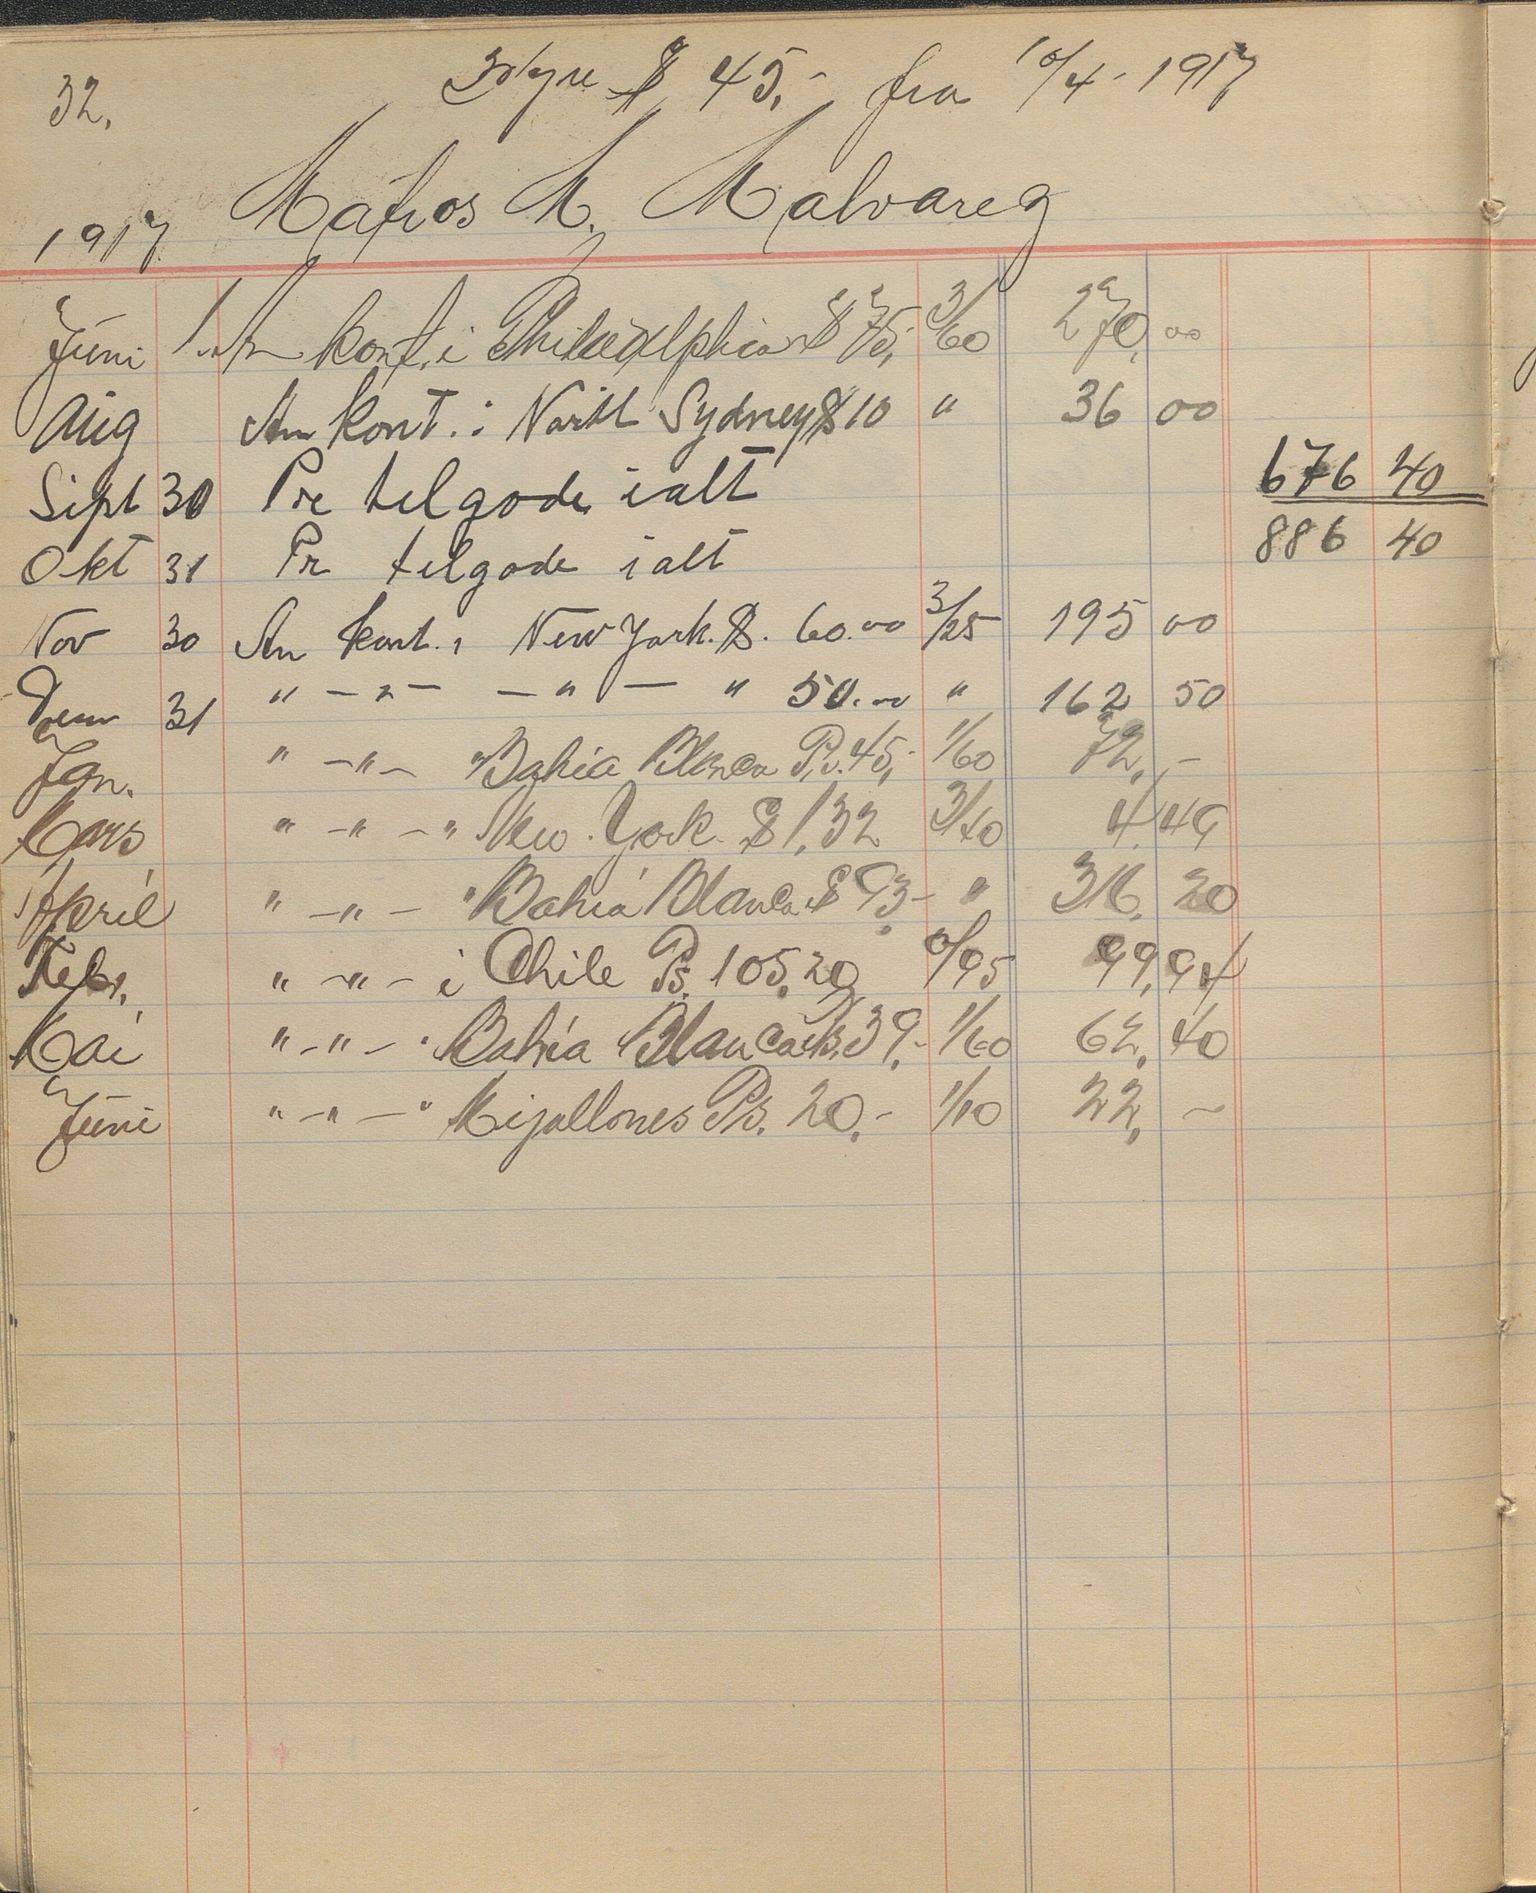 32.
Hyre $ 45,- fra 10/4 - 1917
1917 Matros M. Malvareg
Juni 1. An kont. i Philadelphia $ 75,- 3/60 270,00
Aug An kont. i North Sydney $ 10 " 36 00
Sept 30 Pr tilgode ialt 676 40
Okt 31 Pr tilgode ialt 886 40
Nov 30 An kont. i New York. $. 60.00 3/25 195 00
31 " - " - - " - " 50.00 " 162 50
Jan. " - " - " Bahia Blanca Ps. 45,- 1/60 72,-
Mars " - " - " New York $ 1,32 3/40 4,49
April " - " - " Bahia Blanca $ 93,- " 316,20
Febr. " - " - i Chile Ps. 105,20 0/95 99,94
Mai " - " - " Bahia Blanca Ps. 39,- 1/60 62,40
Juni " - " - " Mijallones Ps. 20,- 1/10 22,-